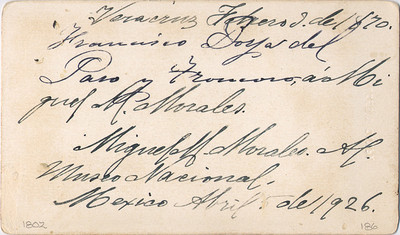 Veracruz Febrero 3. de 1870.
Francisco del
Paso y Troncoso, á Mi
guel M. Morales.
Miguel M. Morales. Al
Museo Nacional.
Mexico Abril de 1926.
1802 186